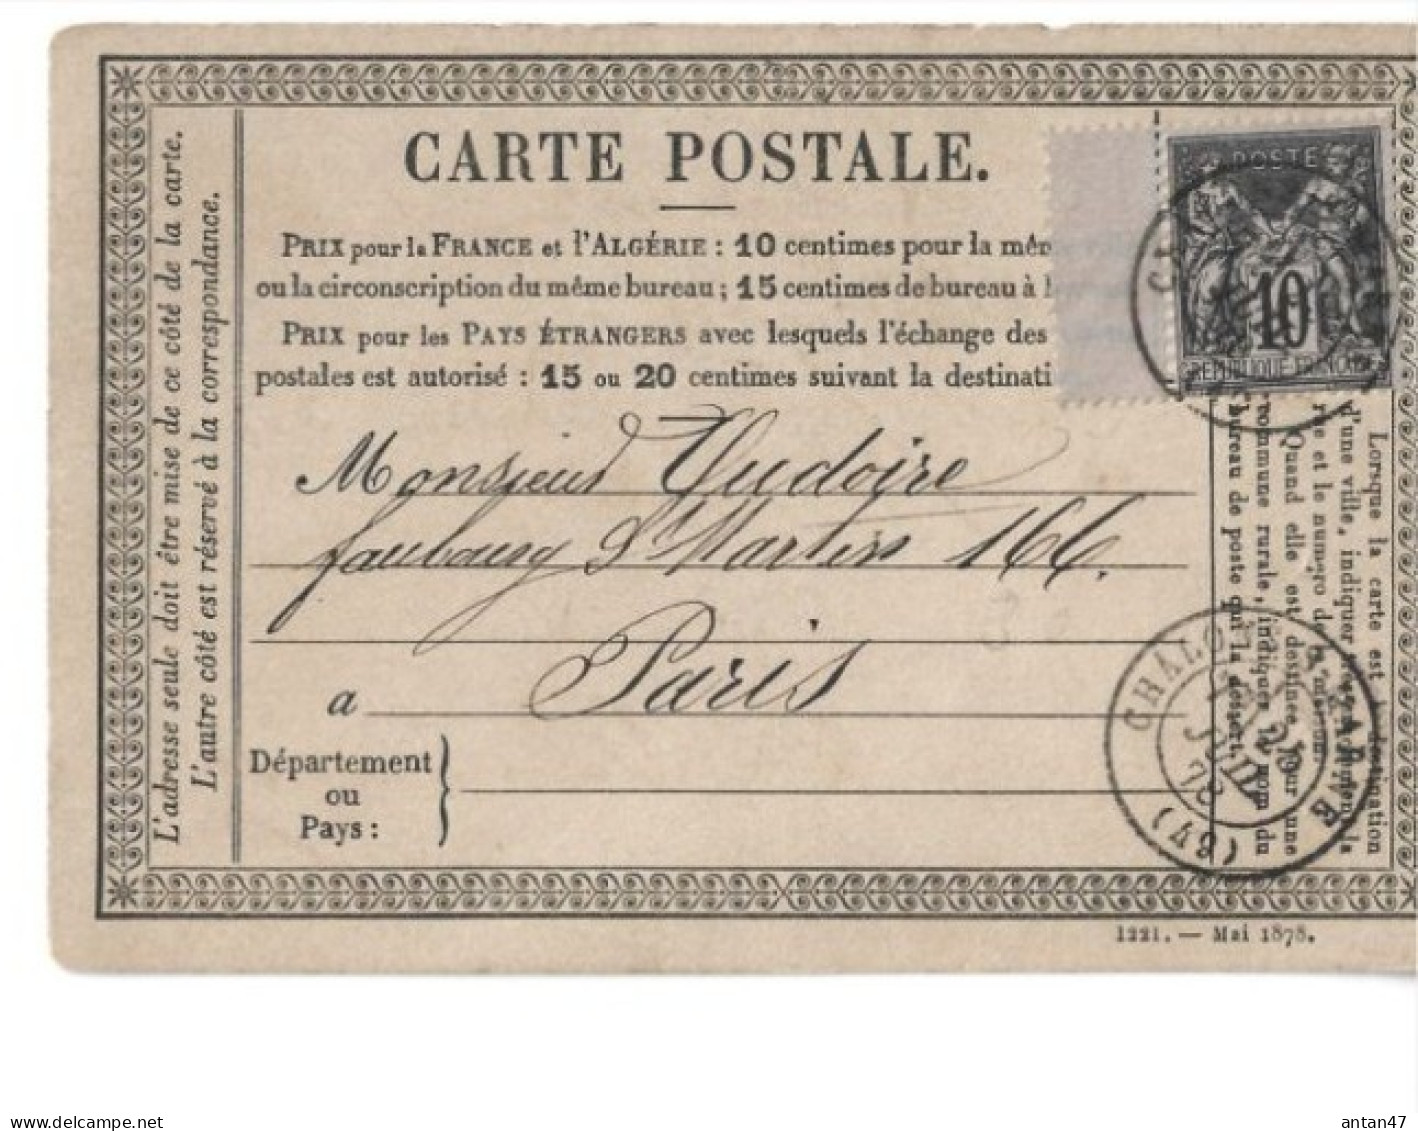 CARTE POSTALE.
PRIX pour la FRANCE et l'ALGÉRIE : 10 centimes pour la mêm
ou la circonscription du même bureau ; 15 centimes de bureau à b
PRIX pour les PAYS ÉTRANGERS avec lesquels l'échange des
postales est autorisé : 15 ou 20 centimes suivant la destinati
L'adresse seule doit être mise de ce côté de la carte.
L'autre côté est réservé à la correspondance.
POSTE
10
REPUBLIQUE FRANCAISE
Monsieur Tudoire
faubourg St Martin 166.
a Paris
Département
ou
Pays :
Lorsque la carte est à destination
d'une ville, indiquer
rue et le numéro de la maison.
Quand elle est destinée pour une
commune rurale, indiquer le nom du
bureau de poste qui la dessert.
CHALON
MARNE
JUIL
78
1221. — Mai 1878.
delcampe.net
antan47